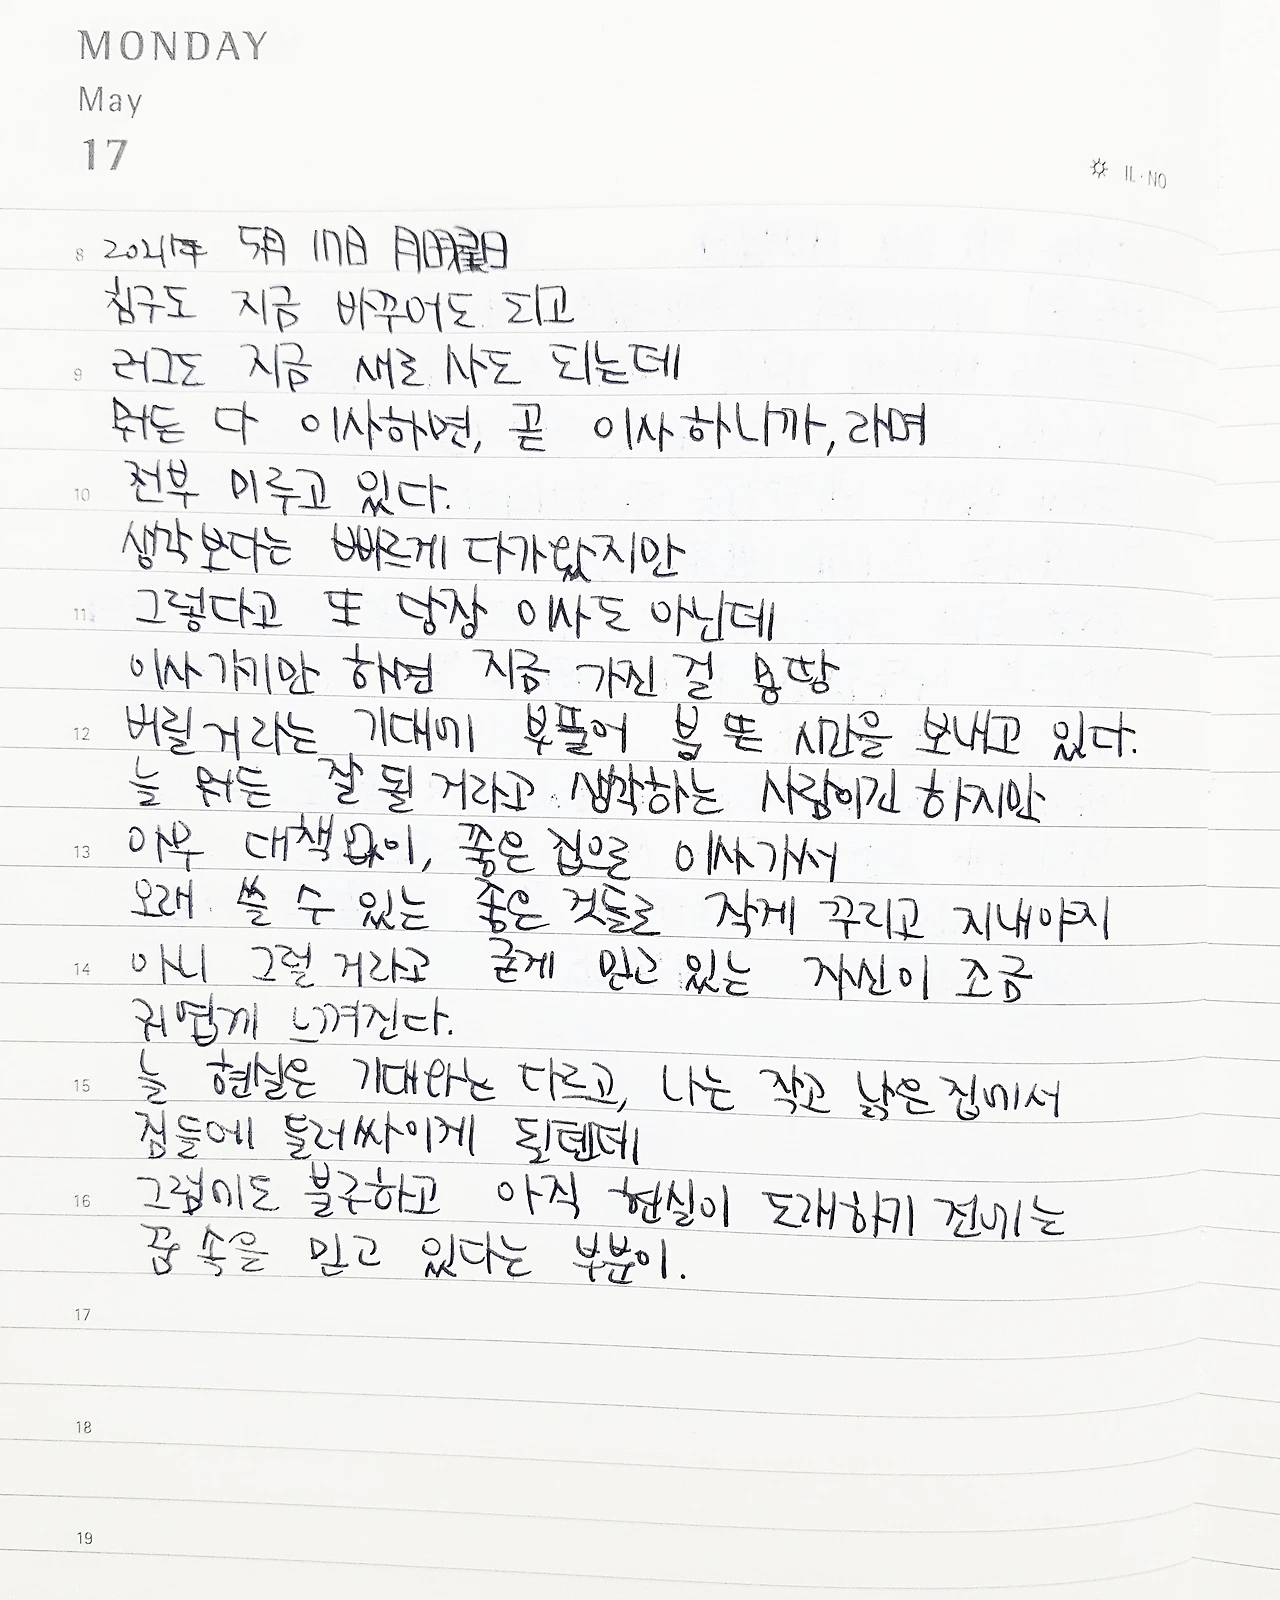 MONDAY
May
17
IL·NO
8 2021年 5月 17日 月曜日
침구도 지금 바꾸어도 되고
9 러그도 지금 새로 사도 되는데
뭐든 다 이사하면, 곧 이사하니까, 라며
10 전부 미루고 있다.
생각보다는 빠르게 다가왔지만
11 그렇다고 또 당장 이사도 아닌데
이사 가기만 하면 지금 가진 걸 몽땅
12 버릴 거라는 기대에 부풀어 붕 뜬 시간을 보내고 있다.
늘 뭐든 잘 될 거라고 생각하는 사람이긴 하지만
13 아무 대책없이, 좋은 집으로 이사가서
오래 쓸 수 있는 좋은 것들로 작게 꾸리고 지내야지
14 아니 그럴 거라고 굳게 믿고 있는 자신이 조금
귀엽게 느껴진다.
15 늘 현실은 기대와는 다르고, 나는 작고 낡은 집에서
짐들에 둘러싸이게 될텐데
16 그럼에도 불구하고 아직 현실이 도래하기 전에는
꿈 속을 믿고 있다는 부분이.
17
18
19